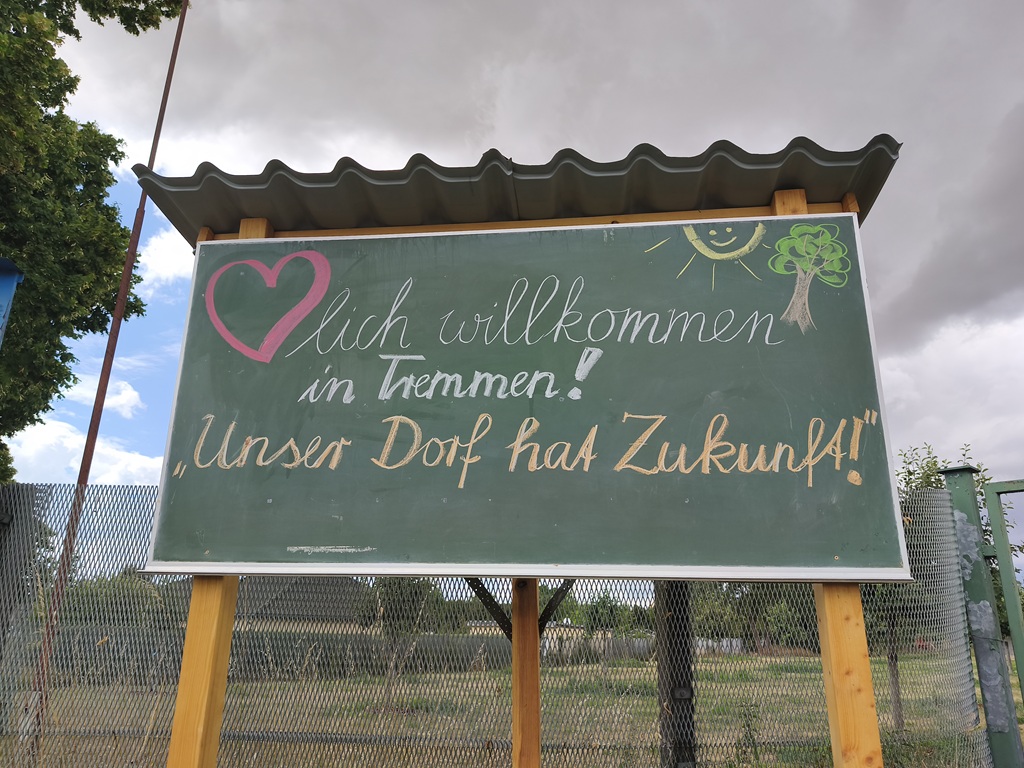 ❤lich willkommen
in Tremmen!
„Unser Dorf hat Zukunft!“